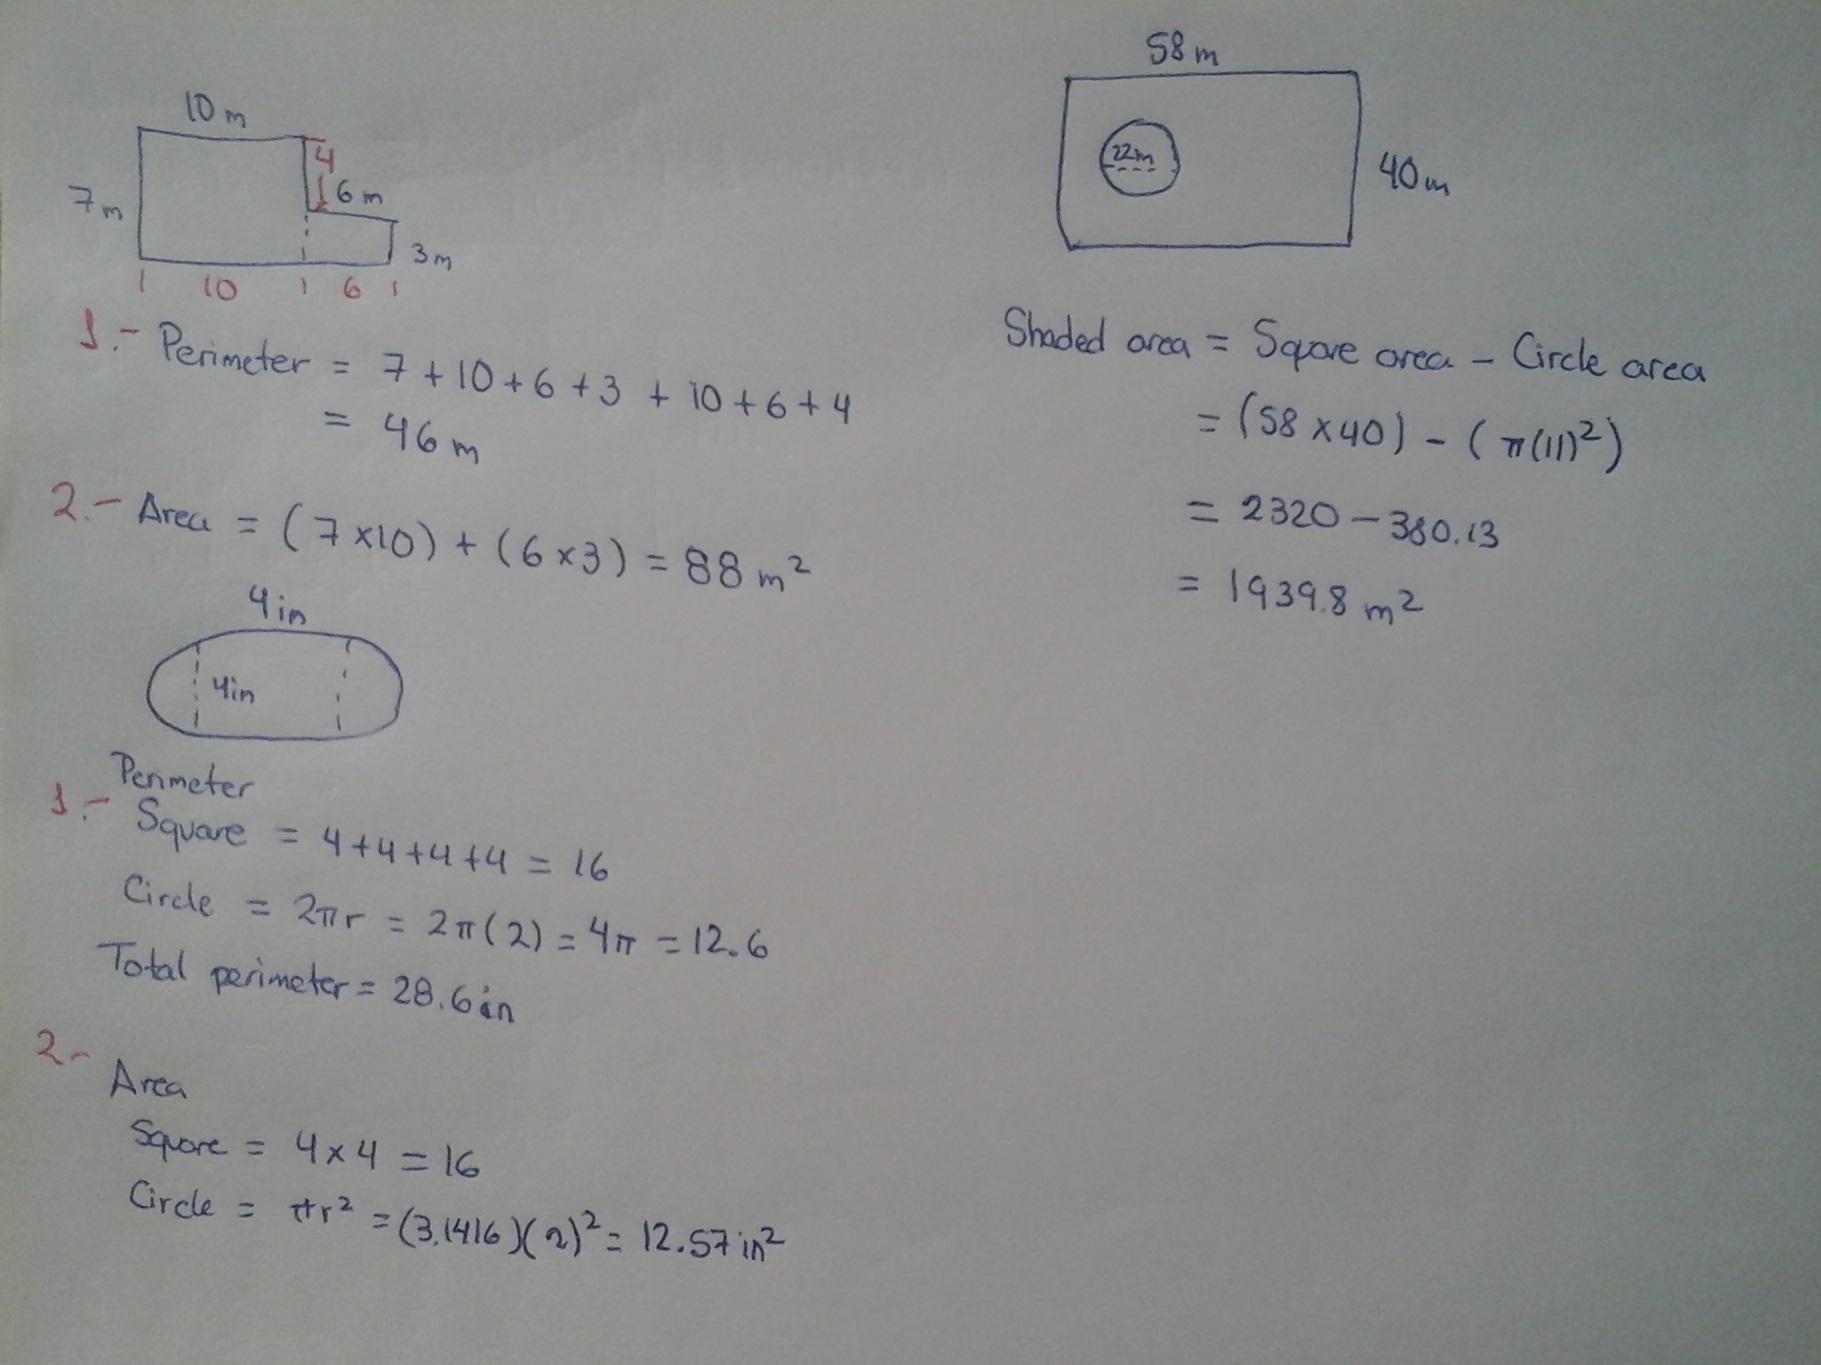 10 m
4
6 m
7 m
3 m
10 6
1.- Perimeter = 7 + 10 + 6 + 3 + 10 + 6 + 4
= 46 m
2.- Area = (7 x 10) + (6 x 3) = 88 m²
4 in
4 in
Perimeter
1.- Square = 4 + 4 + 4 + 4 = 16
Circle = 2πr = 2π(2) = 4π = 12.6
Total perimeter = 28.6 in
2.-
Area
Square = 4 x 4 = 16
Circle = πr² = (3.1416)(2)² = 12.57 in²
58 m
22 m
40 m
Shaded area = Square area - Circle area
= (58 x 40) - (π(11)²)
= 2320 - 380.13
= 1939.8 m²